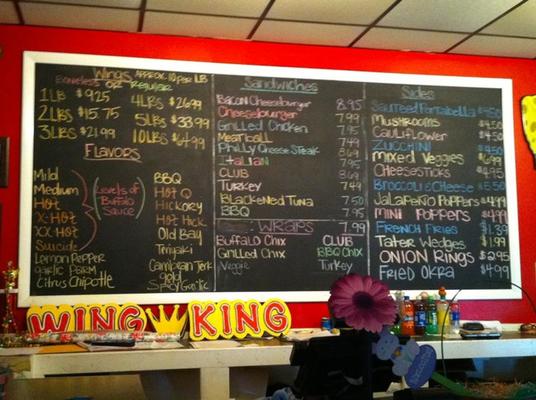 Wings Approx. 10 per LB
Boneless or Regular
1 LB $9.25
2 LBS $15.75
3 LBS $21.99
4 LBS $26.99
5 LBS $33.99
10 LBS $64.99
Flavors
Mild
Medium
Hot
X-Hot
XX-Hot
Suicide
(Levels of Buffalo Sauce)
Lemon Pepper
garlic Parm
Citrus Chipotle
BBQ
Hot Q
Hickory
Hot Hick
Old Bay
Teriyaki
Carribean Jerk
Gold
Spicy Garlic
Sandwiches
Bacon Cheeseburger 8.95
Cheeseburger 7.99
Grilled Chicken 7.99
Meatball
Philly Cheese Steak
Italian 7.95
CLUB 8.69
Turkey 7.49
Blackened Tuna 7.50
BBQ 7.95
WRAPS 7.99
Buffalo Chix
CLUB
Grilled Chix
BBQ Chix
Veggie
Turkey
Sides
Sauteed Portabella
Mushrooms $4.50
Cauliflower $4.50
Zucchini $4.50
Mixed Veggies $6.99
Cheesesticks $4.95
Broccoli & Cheese $5.50
Jalapeño Poppers $4.99
Mini Poppers $4.99
French Fries $1.39
Tater Wedges $1.99
Onion Rings $2.95
Fried Okra $4.99
WING KING